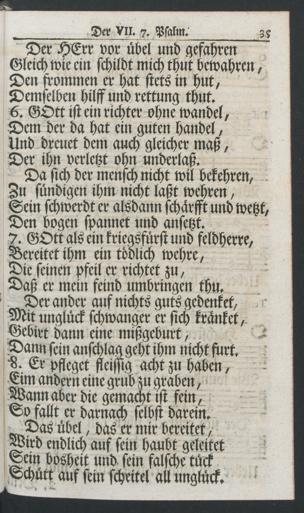 Der VII. 7. Psalm. 35
Der HErr vor übel und gefahren
Gleich wie ein schildt mich thut bewahren,
Den frommen er hat stets in hut,
Demselben hilff und rettung thut.
6. GOtt ist ein richter ohne wandel,
Dem der da hat ein guten handel,
Und dreuet dem auch gleicher maß,
Der ihn verletzt ohn underlaß.
Da sich der mensch nicht wil bekehren,
Zu sündigen ihm nicht laßt wehren,
Sein schwerdt er alsdann schärfft und wetzt,
Den bogen spannet und ansetzt.
7. GOtt als ein kriegsfürst und feldherre,
Bereitet ihm ein tödlich wehre,
Die seinen pfeil er richtet zu,
Daß er mein feind umbringen thu.
Der ander auf nichts guts gedenket,
Mit unglück schwanger er sich kränket,
Gebirt dann eine mißgeburt,
Dann sein anschlag geht ihm nicht furt.
8. Er pfleget fleissig acht zu haben,
Eim andern eine grub zu graben,
Wann aber die gemacht ist fein,
So fallt er darnach selbst darein.
Das übel, das er mir bereitet,
Wird endlich auf sein haubt geleitet
Sein bosheit und sein falsche tück
Schütt auf sein scheitel all unglück.